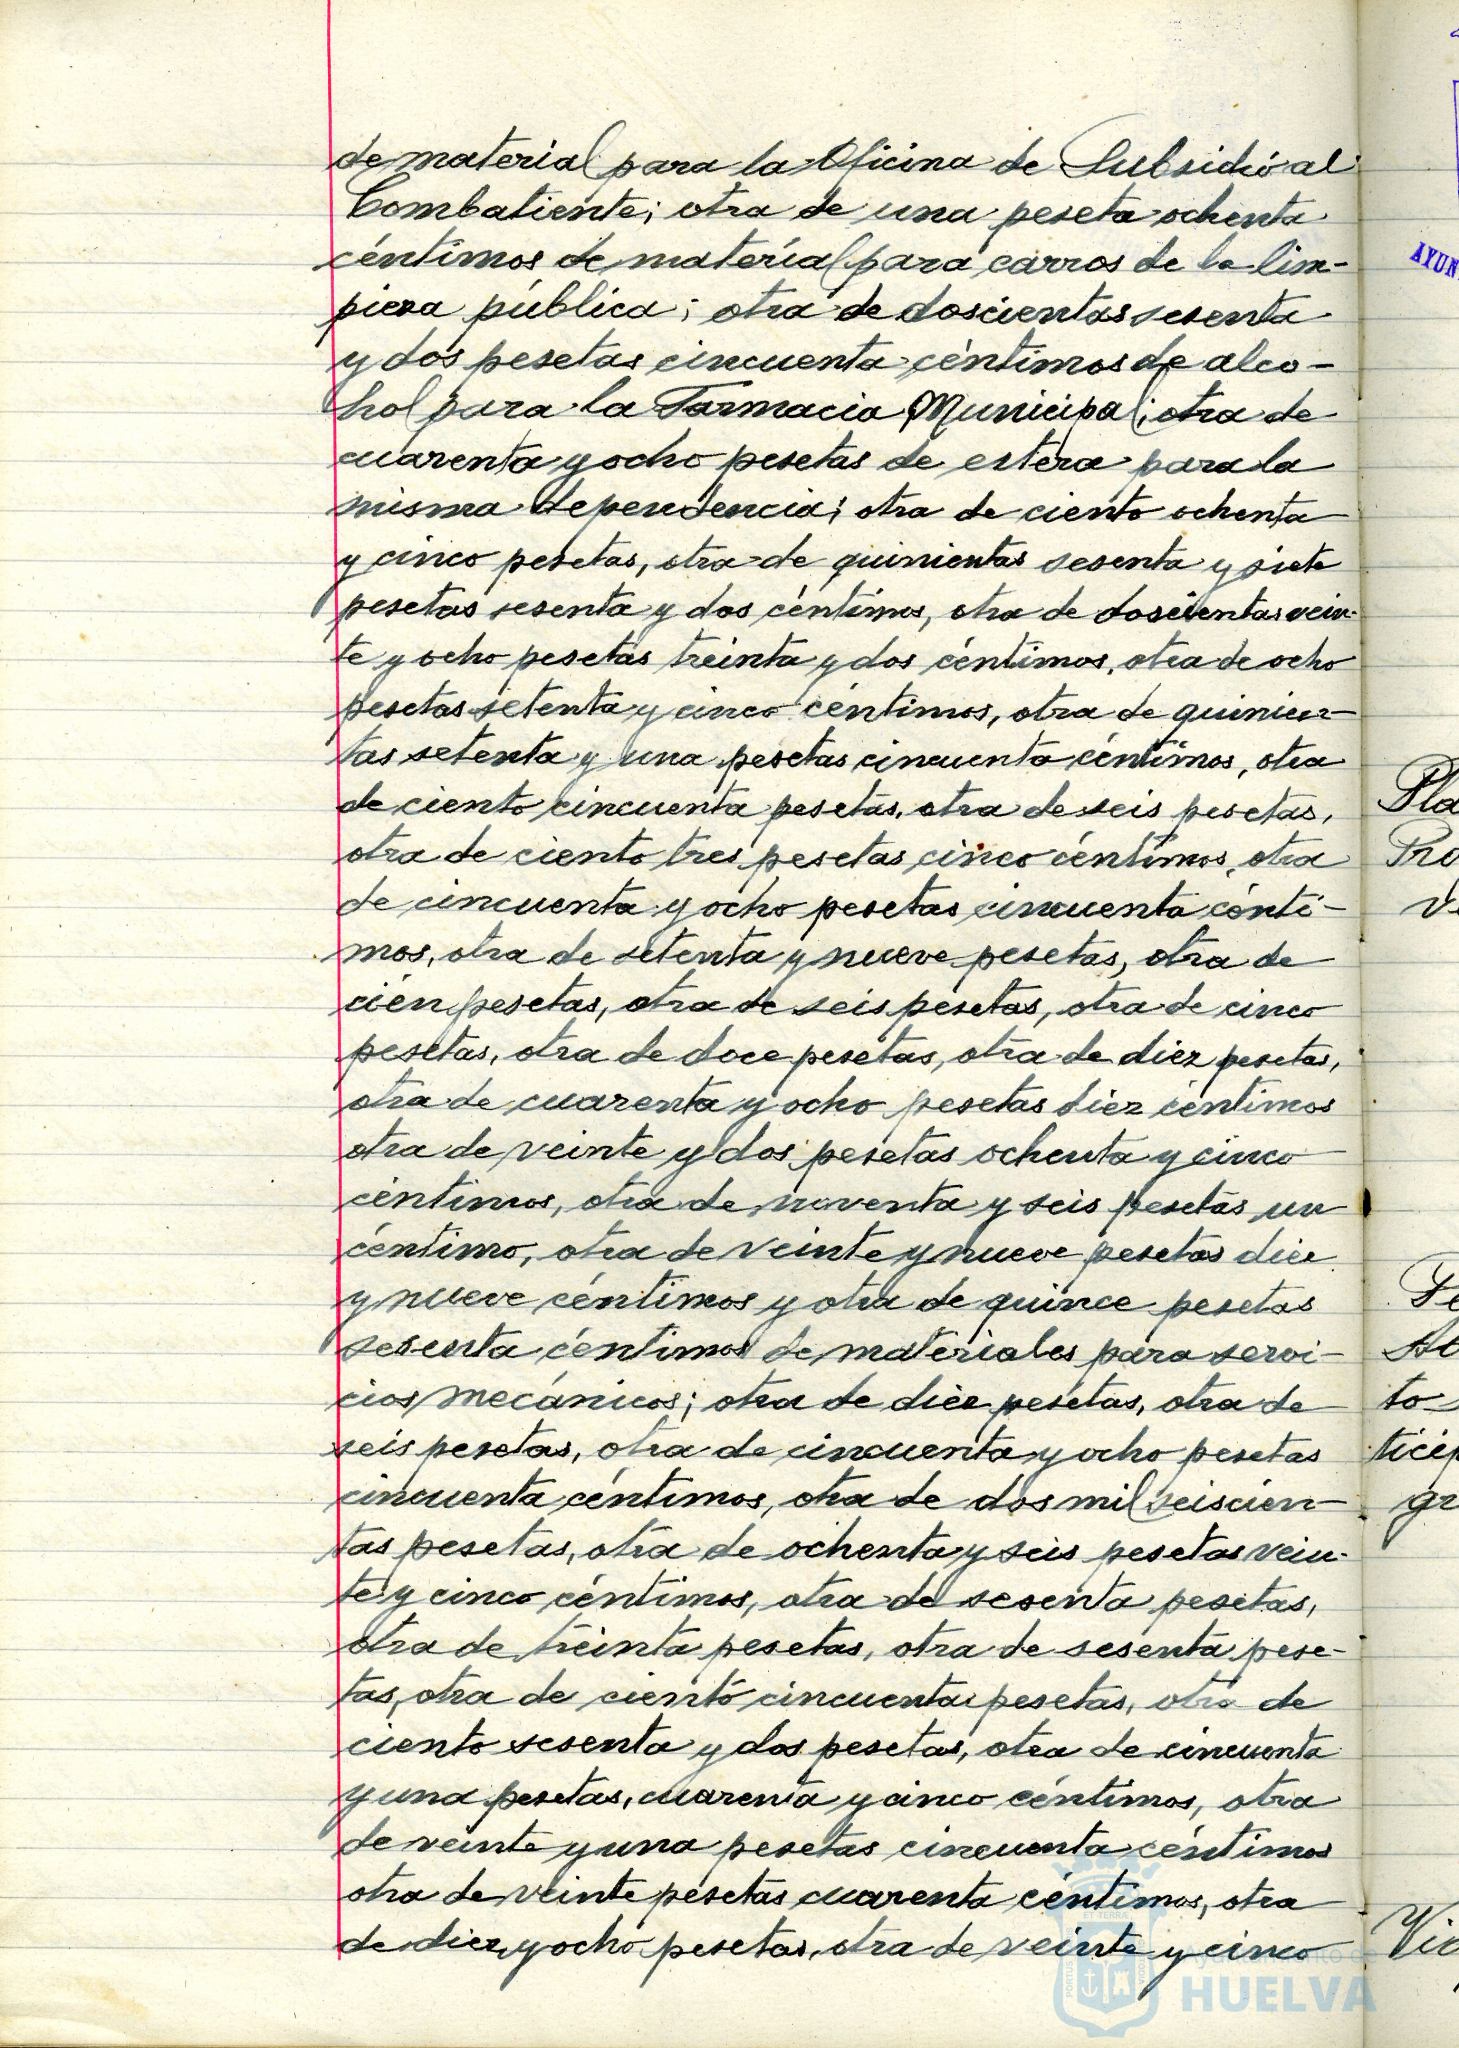 de material para la Oficina de Subsidio al
Combatiente; otra de una peseta ochenta
céntimos de material para carros de la lim-
pieza pública; otra de doscientas sesenta
y dos pesetas cincuenta céntimos de alco-
hol para la Farmacia Municipal; otra de
cuarenta y ocho pesetas de estera para la
misma dependencia; otra de ciento ochenta
y cinco pesetas, otra de quinientas sesenta y siete
pesetas sesenta y dos céntimos, otra de doscientas vein-
te y ocho pesetas treinta y dos céntimos, otra de ocho
pesetas setenta y cinco céntimos, otra de quinien-
tas setenta y una pesetas cincuenta céntimos, otra
de ciento cincuenta pesetas, otra de seis pesetas,
otra de ciento tres pesetas cinco céntimos, otra
de cincuenta y ocho pesetas cincuenta cénti-
mos, otra de setenta y nueve pesetas, otra de
cien pesetas, otra de seis pesetas, otra de cinco
pesetas, otra de doce pesetas, otra de diez pesetas,
otra de cuarenta y ocho pesetas diez céntimos
otra de veinte y dos pesetas ochenta y cinco
céntimos, otra de noventa y seis pesetas un
céntimo, otra de veinte y nueve pesetas diez
y nueve céntimos y otra de quince pesetas
sesenta céntimos de materiales para servi-
cios mecánicos; otra de diez pesetas, otra de
seis pesetas, otra de cincuenta y ocho pesetas
cincuenta céntimos, otra de dos mil seiscien-
tas pesetas, otra de ochenta y seis pesetas vein-
te y cinco céntimos, otra de sesenta pesetas,
otra de treinta pesetas, otra de sesenta pese-
tas, otra de ciento cincuenta pesetas, otra de
ciento sesenta y dos pesetas, otra de cincuenta
y una pesetas, cuarenta y cinco céntimos, otra
de veinte y una pesetas cincuenta céntimos
otra de veinte pesetas cuarenta céntimos, otra
de diez y ocho pesetas, otra de veinte y cinco
AYUN
Pla
Pro
to
ticip
gr
Ayuntamiento de
HUELVA